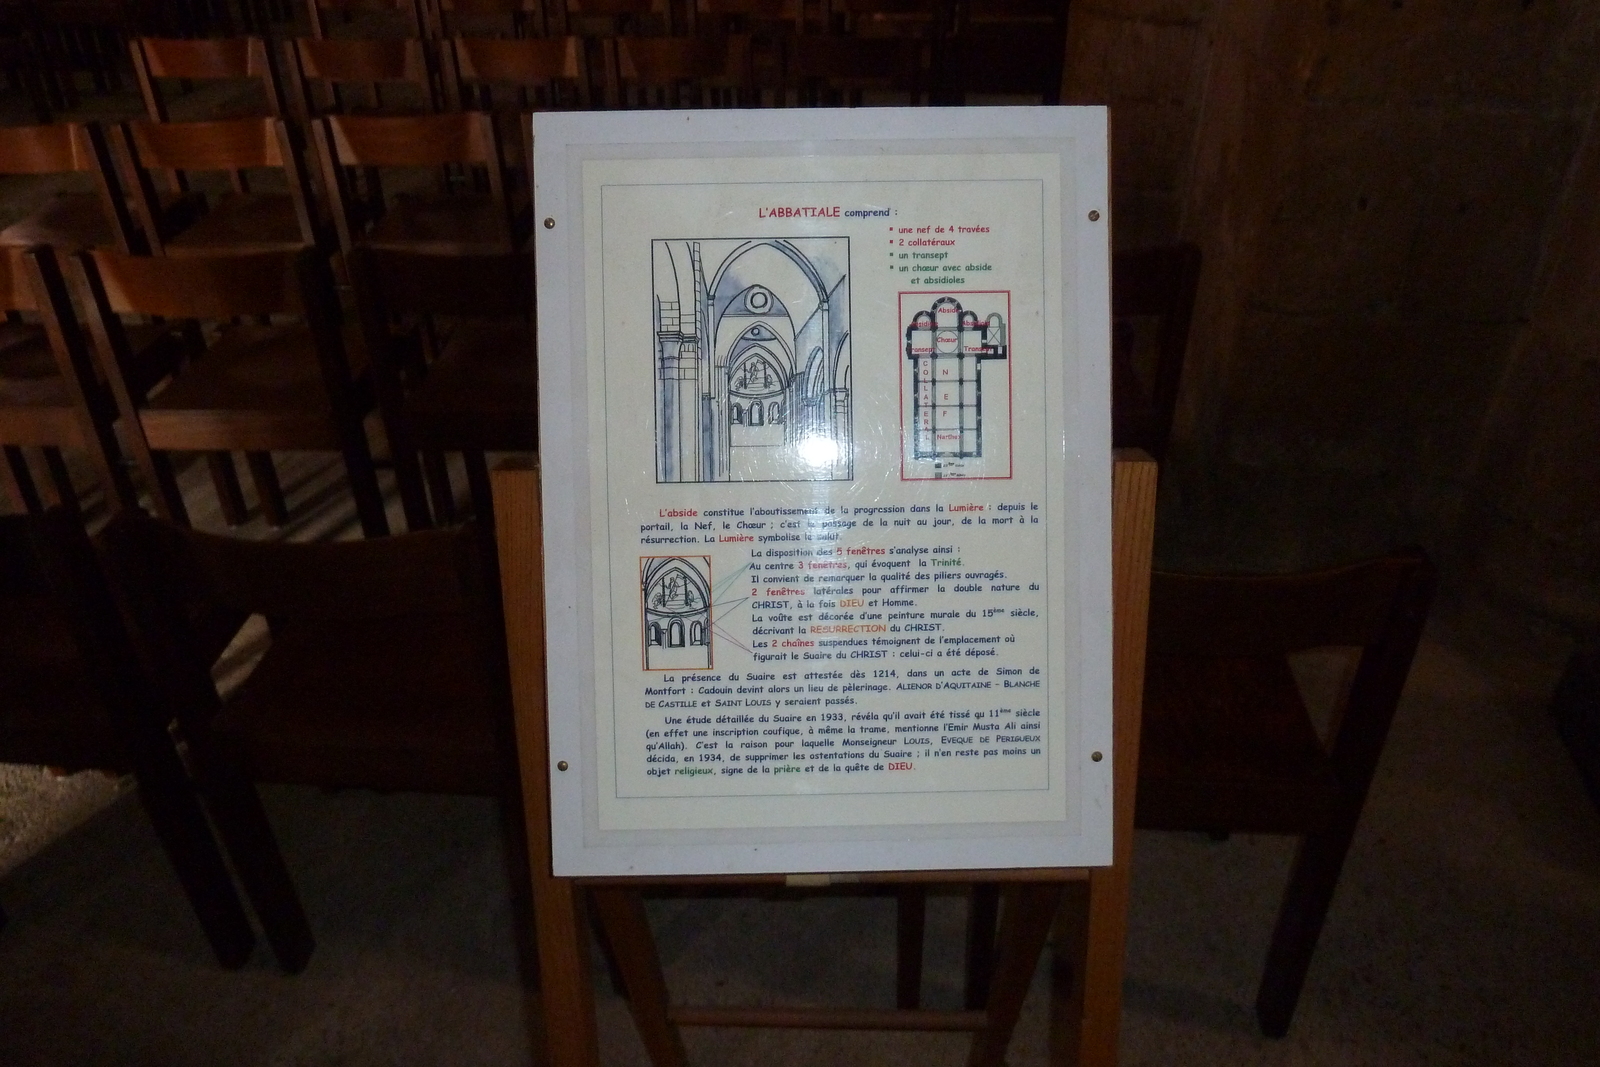 L'ABBATIALE comprend :
une nef de 4 travées
2 collatéraux
un transept
un chœur avec abside
et absidioles
Abside
Chœur
Transept
COLLATERAL
NEF
Narthex
L'abside constitue l'aboutissement de la progression dans la Lumière : depuis le
portail, la Nef, le Chœur ; c'est le passage de la nuit au jour, de la mort à la
résurrection. La Lumière symbolise le salut.
La disposition des 5 fenêtres s'analyse ainsi :
Au centre 3 fenêtres, qui évoquent la Trinité.
Il convient de remarquer la qualité des piliers ouvragés.
2 fenêtres latérales pour affirmer la double nature du
CHRIST, à la fois DIEU et Homme.
La voûte est décorée d'une peinture murale du 15ème siècle,
décrivant la RESURRECTION du CHRIST.
Les 2 chaînes suspendues témoignent de l'emplacement où
figurait le Suaire du CHRIST : celui-ci a été déposé.
La présence du Suaire est attestée dès 1214, dans un acte de Simon de
Montfort : Cadouin devint alors un lieu de pèlerinage. ALIENOR D'AQUITAINE - BLANCHE
DE CASTILLE et SAINT LOUIS y seraient passés.
Une étude détaillée du Suaire en 1933, révéla qu'il avait été tissé qu 11ème siècle
(en effet une inscription coufique, à même la trame, mentionne l'Emir Musta Ali ainsi
qu'Allah). C'est la raison pour laquelle Monseigneur LOUIS, EVEQUE DE PERIGUEUX
décida, en 1934, de supprimer les ostentations du Suaire ; il n'en reste pas moins un
objet religieux, signe de la prière et de la quête de DIEU.